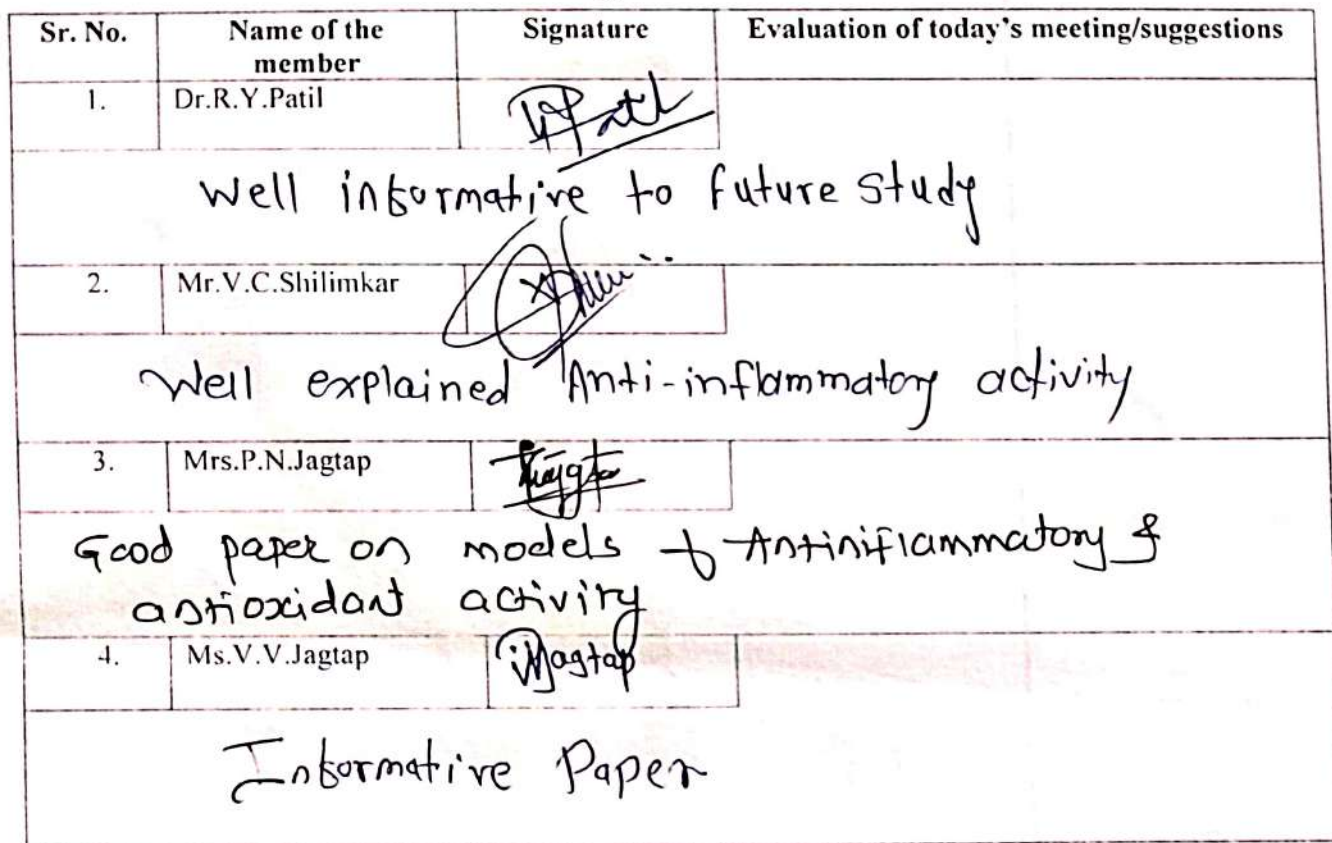 Sr. No. Name of the member Signature Evaluation of today's meeting/suggestions
1. Dr.R.Y.Patil Patil
Well informative to future study
2. Mr.V.C.Shilimkar
Well explained Anti-inflammatory activity
3. Mrs.P.N.Jagtap
Good paper on models of Antiniflammatory &
antioxidant activity
4. Ms.V.V.Jagtap VVJagtap
Informative Paper